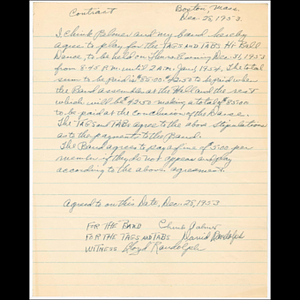 Contract
Boston, Mass
Dec. 28, 1953
I Chink Palmer and my band hereby
agree to play for the TAGS and TABS Hi Ball
Dance, to be held on Thurs. Evening Dec. 31, 1953
from 8:45 P.M. until 2 A.M. Jan 1, 1954. The total
sum to be paid is $85.00. $42.50 to be paid when
the Band assembles at the Hall and the rest
which will be $42.50 making a total of $85.00
to be paid at the conclusion of the Dance.
The TAGS and TABS agree to the above stipulations
as to the payment to the Band.
The Band agrees to pay a fine of 5.00 per
member if they do not appear and play
according to the above agreement.
Agreed on this Date, Dec. 28, 1953
FOR THE BAND Chink Palmer
FOR THE TAGS and TABS David Randolph
WITNESS Lloyd Randolph